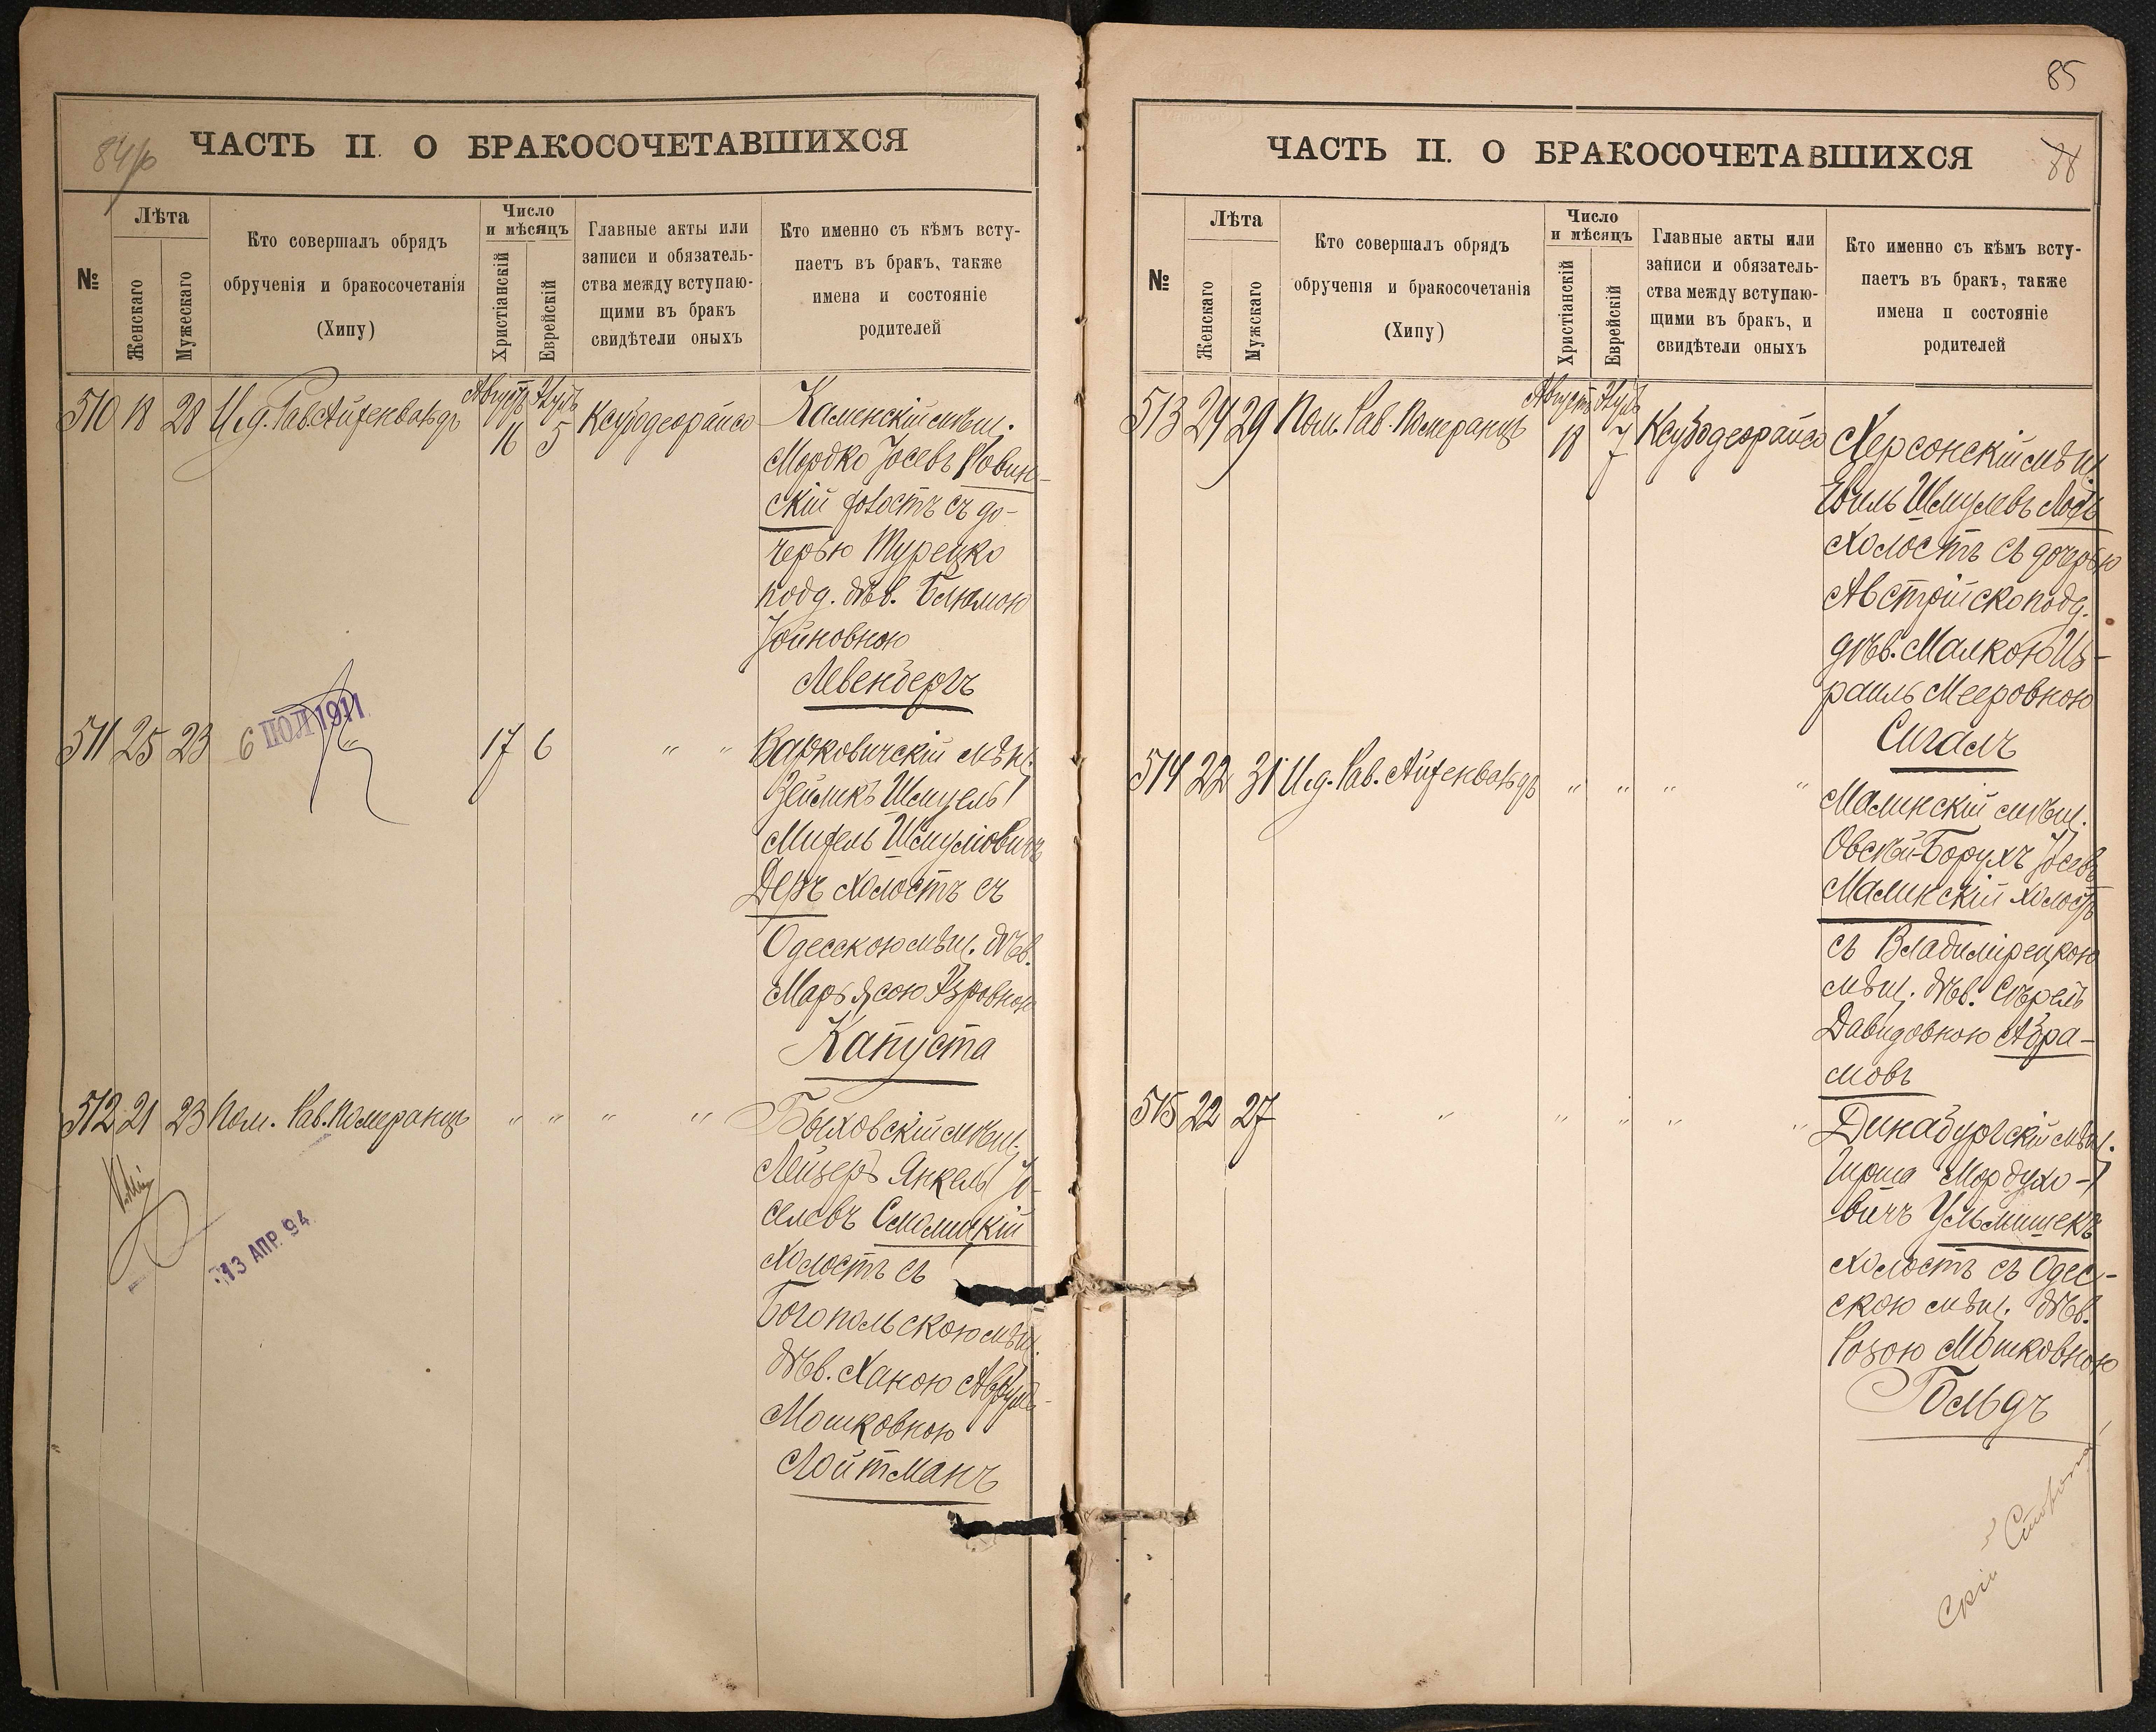 84 об
ЧАСТЬ II. О БРАКОСОЧЕТАВШИХСЯ
№
Лѣта
Женскаго
Мужескаго
Кто совершалъ обрядъ
обрученія и бракосочетанія
(Хипу)
Число
и мѣсяцъ
Христіанскій
Еврейскій
Главные акты или
записи и обязатель-
ства между вступаю-
щими въ бракъ
свидѣтели оныхъ
Кто именно съ кѣмъ всту-
паетъ въ бракъ, также
имена и состояніе
родителей
510 18 28 И.д. Рав. Айзенвальдъ Августъ 16 Элулъ 5 Ксубодеорайсо
Каменскій мѣщ.
Мордко Іосевъ Ровин-
скій холостъ съ до-
черью Турецко
подд. дѣв. Блюмою
Іойновною
Левенбергъ
511 25 23 " 17 6 " "
6 ІЮЛ 1911
Варковичскій мѣщ.
Зейликъ Шмуель
Шмуліовичъ
Деръ холостъ съ
Одесскою мѣщ. дѣв.
Марьясою Азровною
Капуста
512 21 23 Пом. Рав. Померанцъ " " " "
13 АПР. 94
Быховскій мѣщ.
Лейзеръ Янкель Іо-
селевъ Смолицкій
холостъ съ
Богопольскою мѣщ.
дѣв. Ханою
Мошковною
Лойтманъ
85
ЧАСТЬ II. О БРАКОСОЧЕТАВШИХСЯ
88
№
Лѣта
Женскаго
Мужскаго
Кто совершалъ обрядъ
обрученія и бракосочетанія
(Хипу)
Число
и мѣсяцъ
Христіанскій
Еврейскій
Главные акты или
записи и обязатель-
ства между вступаю-
щими въ бракъ, и
свидѣтели оныхъ
Кто именно съ кѣмъ всту-
паетъ въ бракъ, также
имена и состояніе
родителей
513 24 29 Пом. Рав. Померанцъ Августъ 18 Элулъ 7 Ксубодеорайсо
Херсонскій мѣщ.
Шмулевъ
холостъ съ дочерью
Австрійско подд.
дѣв. Малкою Из-
раиль Мееровною
Сигалъ
514 22 31 И.д. Рав. Айзенвальдъ " " " "
Малинскій мѣщ.
Овсѣй-Борухъ Іосевъ
Малинскій холостъ
съ Владимірецкою
мѣщ. дѣв. Сѣрель
Давидовною Абра-
мовъ
515 22 27 " " " " "
Динабургскій мѣщ.
Гирша Мордухо-
вичъ Ульмишекъ
холостъ съ Одес-
скою мѣщ. дѣв.
Розою Мошковною
Гольдъ